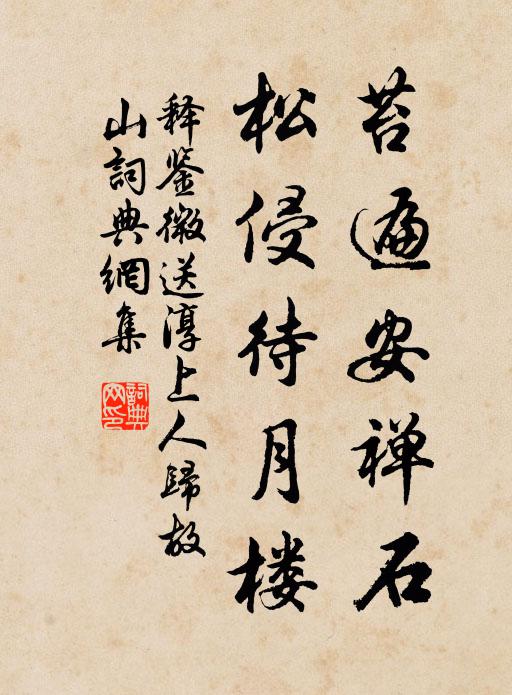 苔遍安禅石
松侵待月楼
释鉴微送淳上人歸故
山詞典網集
詞典网印